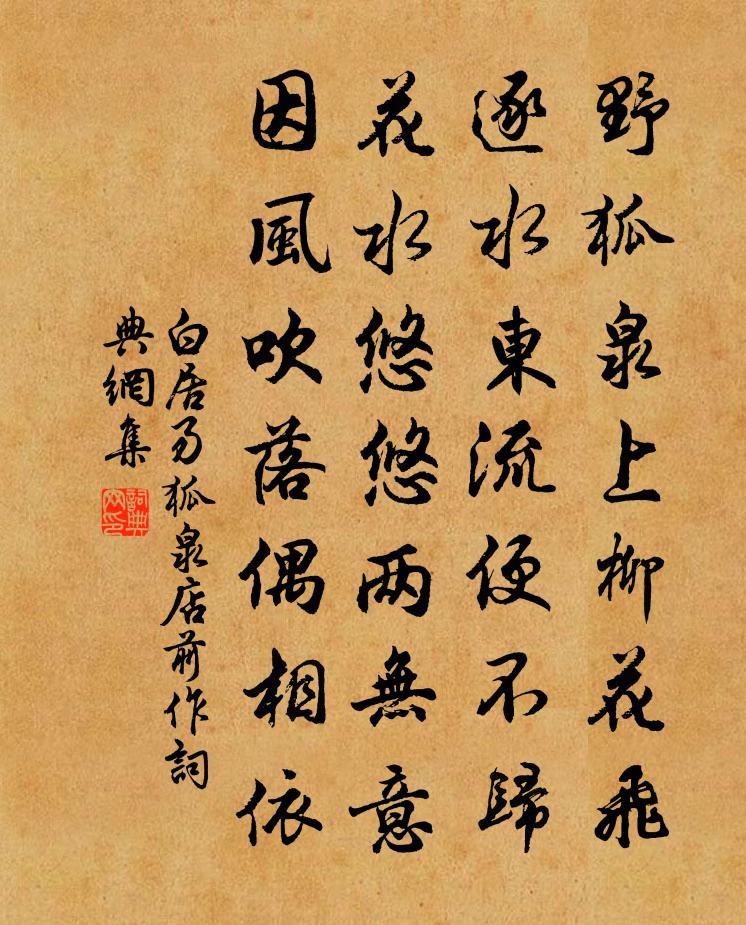 野狐泉上柳花飛
逐水東流便不歸
花水悠悠两無意
因風吹落偶相依
白居易狐泉店前作詞
典網集
詞典
网印